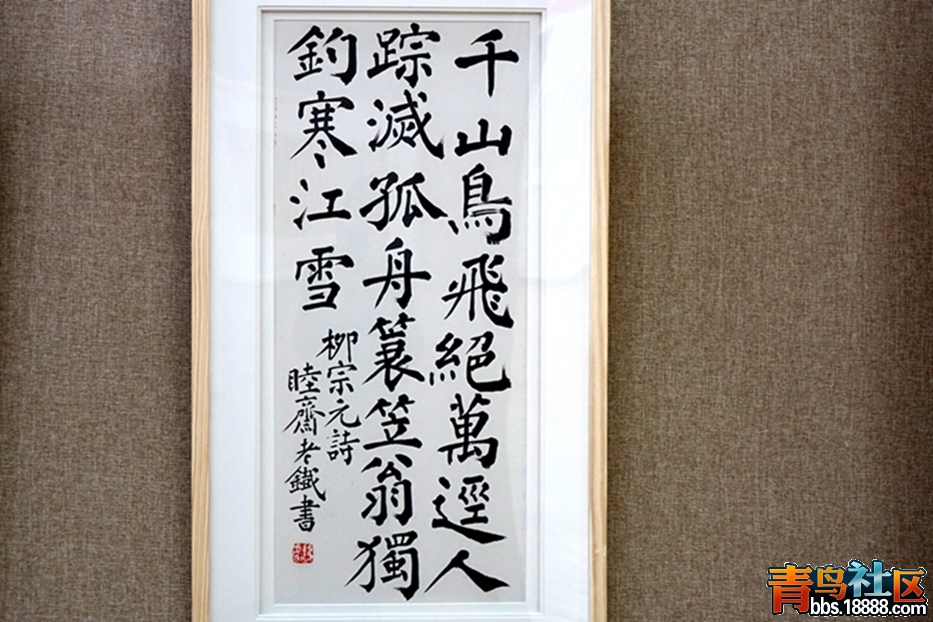 千山鳥飛絕萬逕人
踪滅孤舟簑笠翁獨
釣寒江雪
柳宗元詩
睦齋老鐵書
青鸟社区
bbs.18888.com